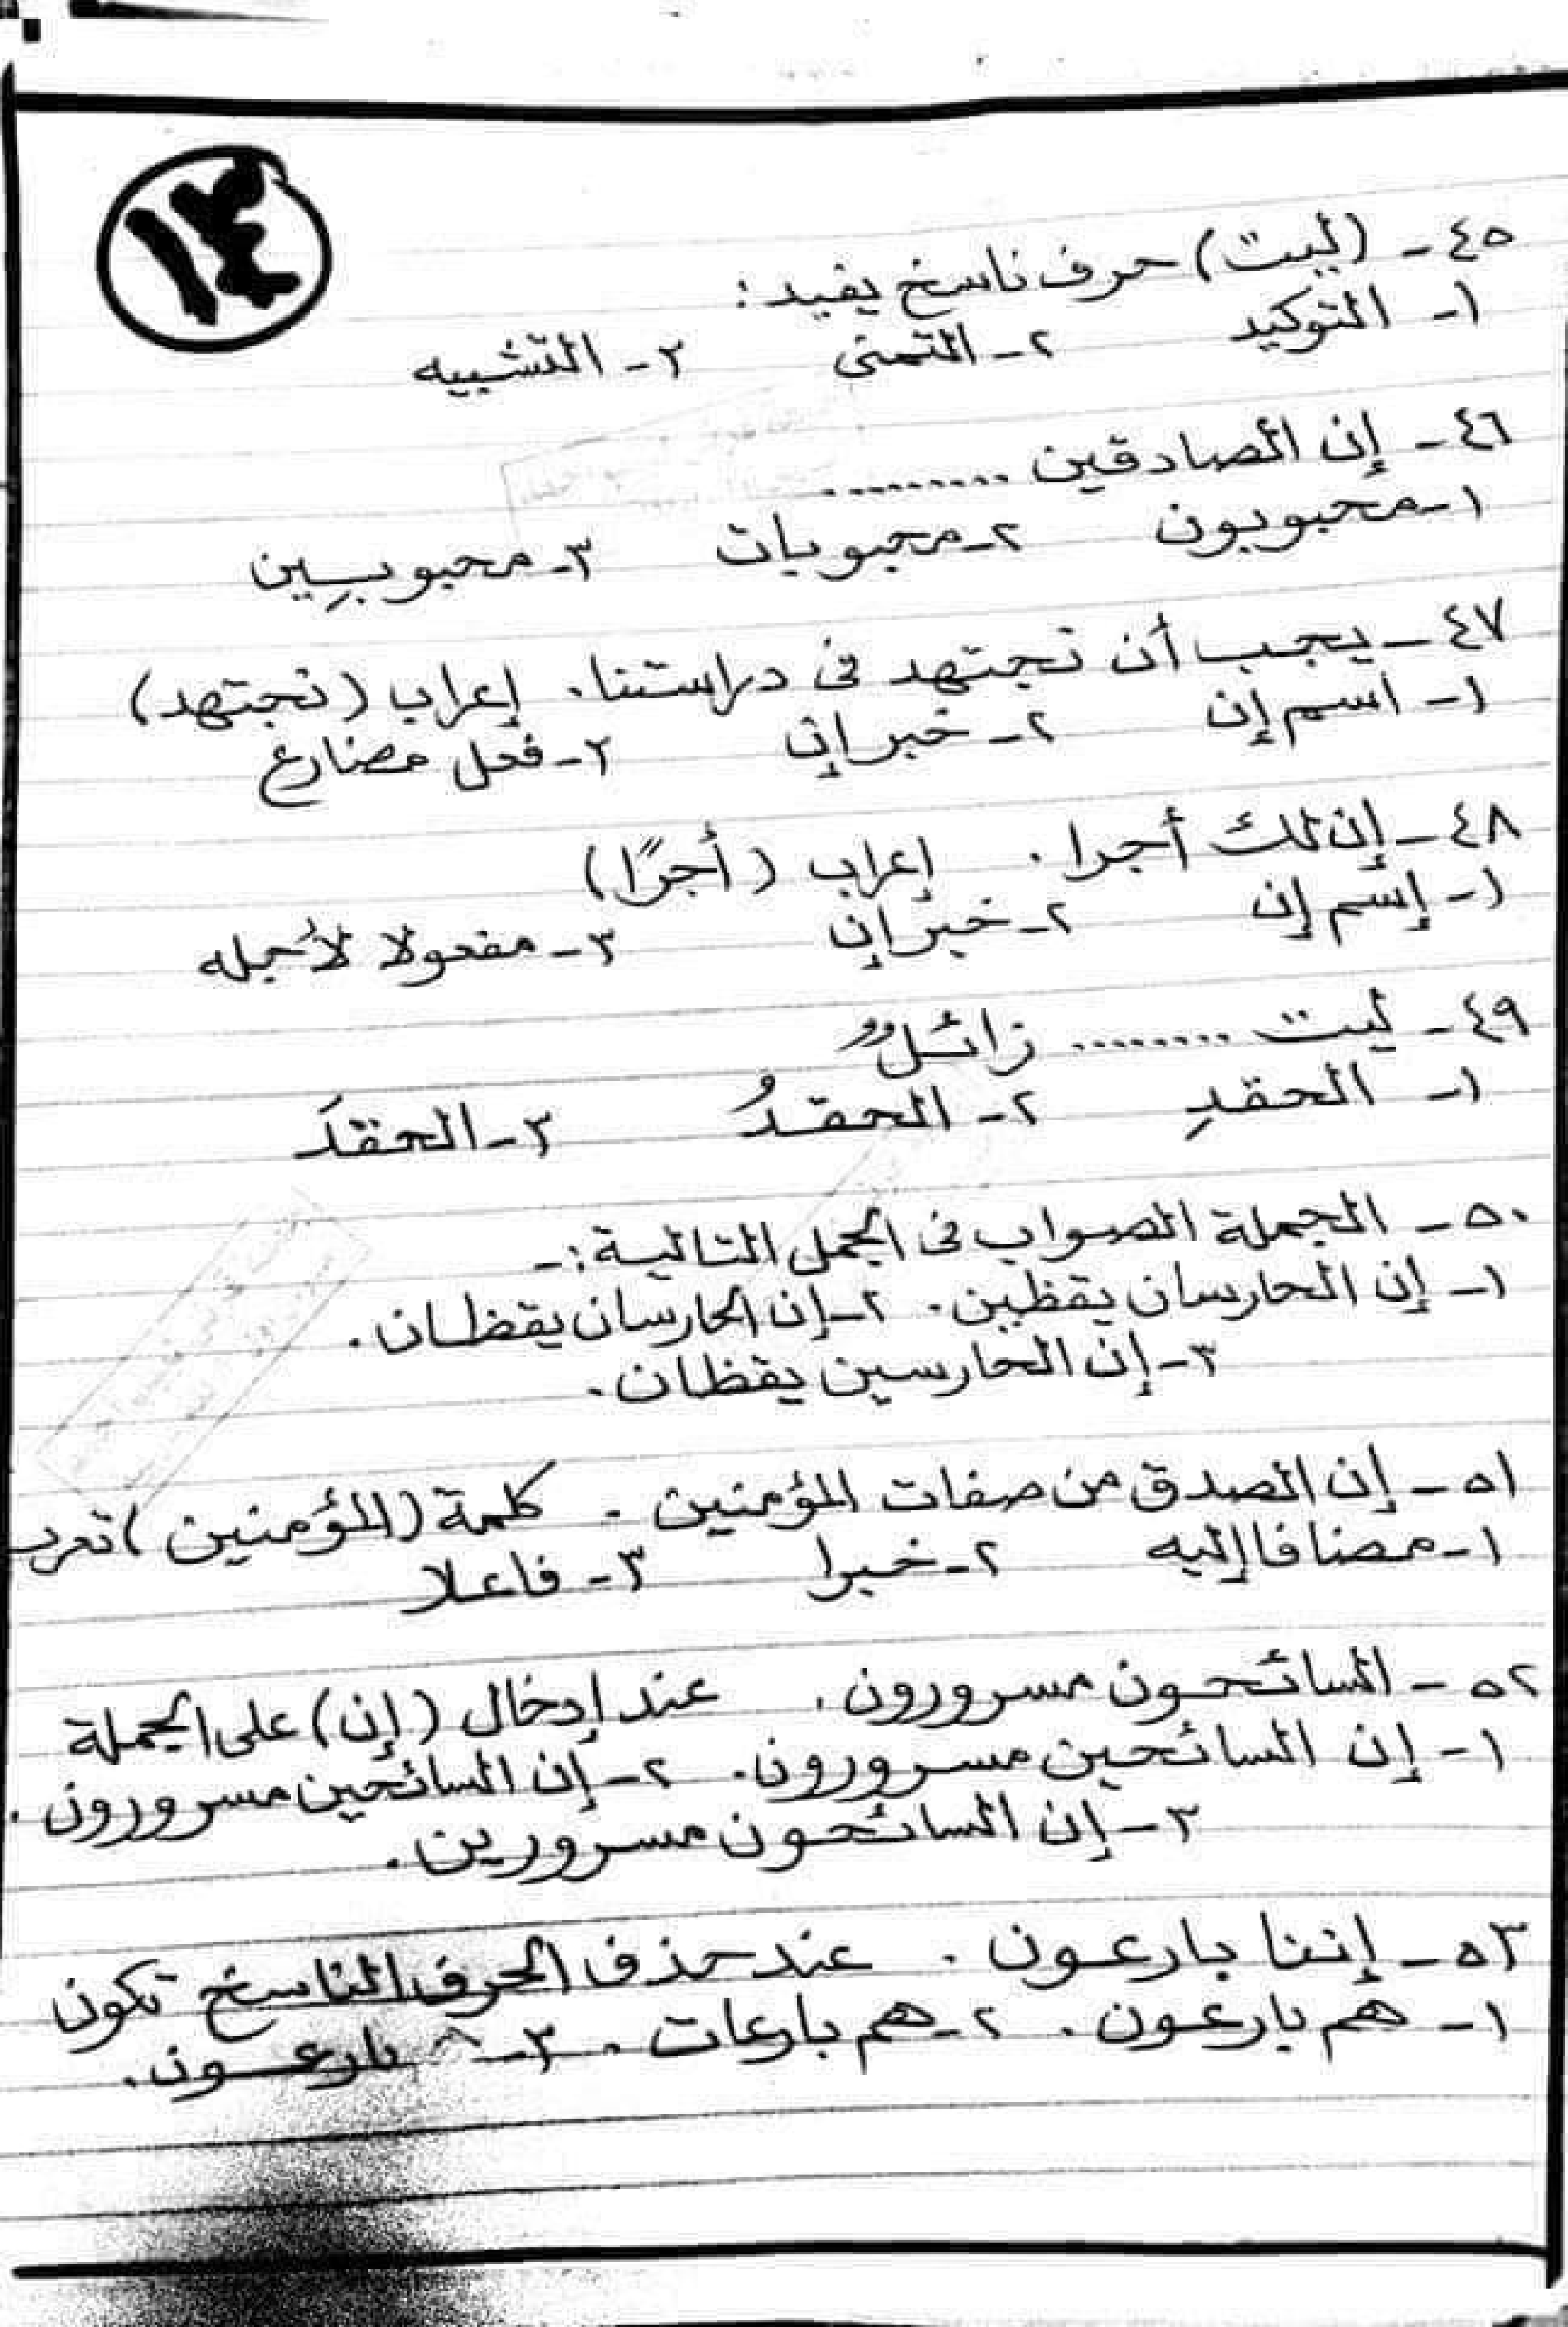 ١٣
٤٥ - (ليت) حرف ناسخ يفيد :
١- التوكيد ٢- التمنى ٣- التشبيه
٤٦ - إن الصادقين .........
١- محبوبون ٢- محبوبات ٣- محبوبين
٤٧ - يجب أن نجتهد فى دراستنا. إعراب (نجتهد)
١- اسم إن ٢- خبر إن ٣- فعل مضارع
٤٨ - إن لك أجرا . إعراب (أجرًا)
١- إسم إن ٢- خبر إن ٣- مفعولا لأجله
٤٩ - ليت ........ زائلٌ
١- الحقدِ ٢- الحقدُ ٣- الحقدَ
٥٠ - الجملة الصواب فى الجمل التالية :-
١- إن الحارسان يقظين. ٢- إن الحارسان يقظان.
٣- إن الحارسين يقظان.
٥١ - إن الصدق من صفات المؤمنين . كلمة (المؤمنين) تعرب
١- مضافا إليه ٢- خبرا ٣- فاعلا
٥٢ - السائحون مسرورون. عند إدخال (إن) على الجملة
١- إن السائحين مسرورون. ٢- إن السائحين مسرورون.
٣- إن السائحون مسرورين.
٥٣ - إننا بارعون . عند حذف الحرف الناسخ تكون
١- هم بارعون. ٢- هم بارعات. ٣- بارعون.